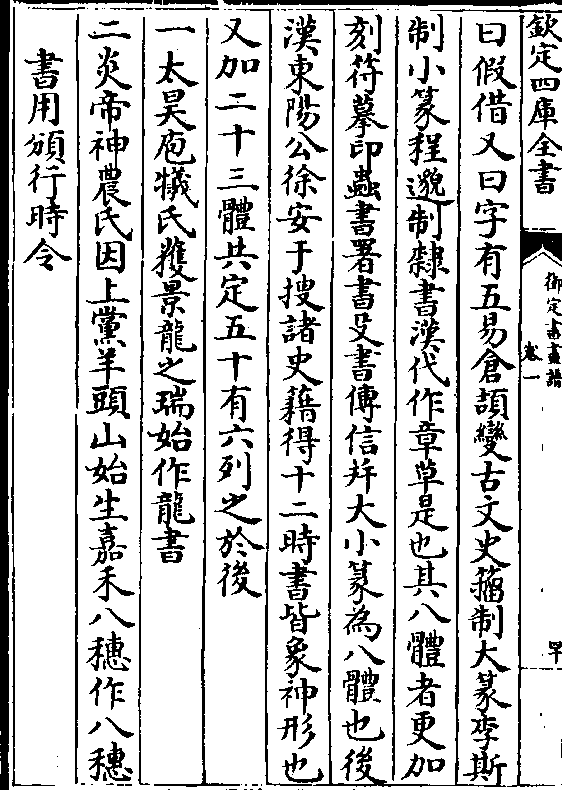 欽定四庫全書
御定書畫譜
卷一
曰假借又曰字有五易倉頡變古文史籀制大篆李斯
制小篆程邈制隸書漢代作章草是也其八體者更加
刻符摹印蟲書署書殳書傳信并大小篆為八體也後
漢東陽公徐安于搜諸史籍得十二時書皆象神形也
又加二十三體共定五十有六列之於後
一太昊庖犧氏獲景龍之瑞始作龍書
二炎帝神農氏因上黨羊頭山始生嘉禾八穗作八穗
書用頒行時令